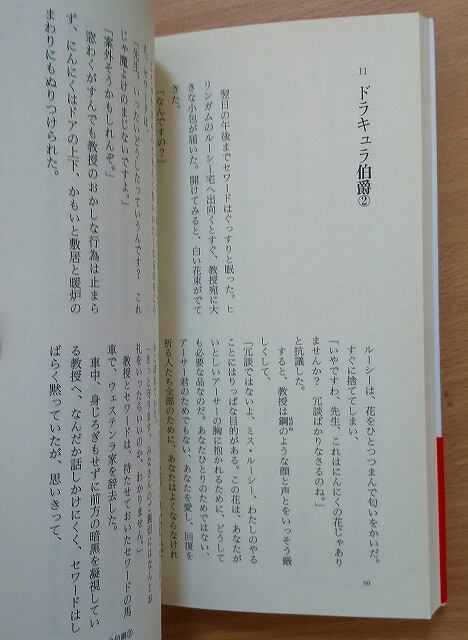 11 ドラキュラ伯爵②
翌日の午後までセワードはぐっすりと眠った。ヒ
リンガムのルーシー宅へ出向くとすぐ、教授宛に大
きな小包が届いた。開けてみると、白い花束がでて
きた。
「なんですの？」
ルーシーは、花をひとつつまんで匂いをかいだ。
すぐに捨ててしまい、
「いやですわ、先生、これはにんにくの花じゃあり
ませんか？　冗談ばかりなさるのね。」
と抗議した。
すると、教授は鋼のような顔と声とをいっそう厳
しくして、
「冗談ではないよ、ミス・ルーシー、わたしのやる
ことにはりっぱな目的がある。この花は、あなたが
いとしいアーサーの胸に抱かれるために、どうして
も必要な品なのだ。あなたひとりのためではない、
アーサー君のためでもない、あなたを愛し、回復を
祈る人たち全部のために、あなたはよくならなけれ
90
「先生、いったいどうしたっていうんです？　これ
じゃ魔よけのまじないですよ。」
「案外そうかもしれんぞ。」
窓わくがすんでも教授のおかしな行為は止まら
ず、にんにくはドアの上下、かもいと敷居と暖炉の
まわりにもぬりつけられた。
「きっと守ります。みなさんのご親切にはなんとお
礼をいったらいいのか、わかりません。」
教授とセワードは、待たせておいたセワードの馬
車で、ウェステンラ家を辞去した。
車中、身じろぎもせずに前方の暗黒を凝視してい
る教授へ、なんだか話しかけにくく、セワードはし
ばらく黙っていたが、思いきって、